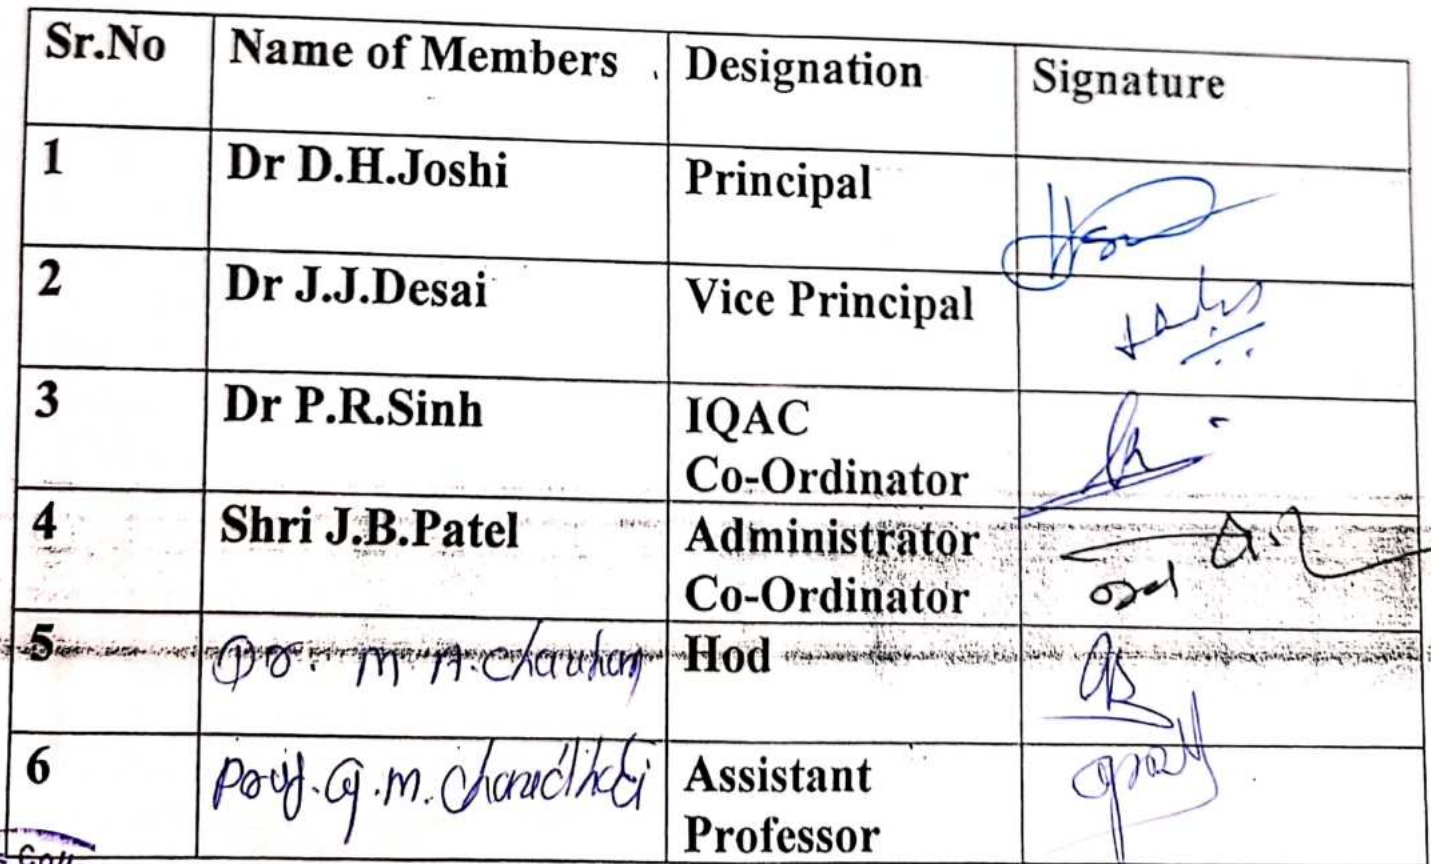 Sr.No Name of Members Designation Signature
1 Dr D.H.Joshi Principal
2 Dr J.J.Desai Vice Principal
3 Dr P.R.Sinh IQAC
Co-Ordinator
4 Shri J.B.Patel Administrator
Co-Ordinator
5 Dr. M.A.Chauhan Hod
6 Prof. G.M. Chaudhari Assistant
Professor